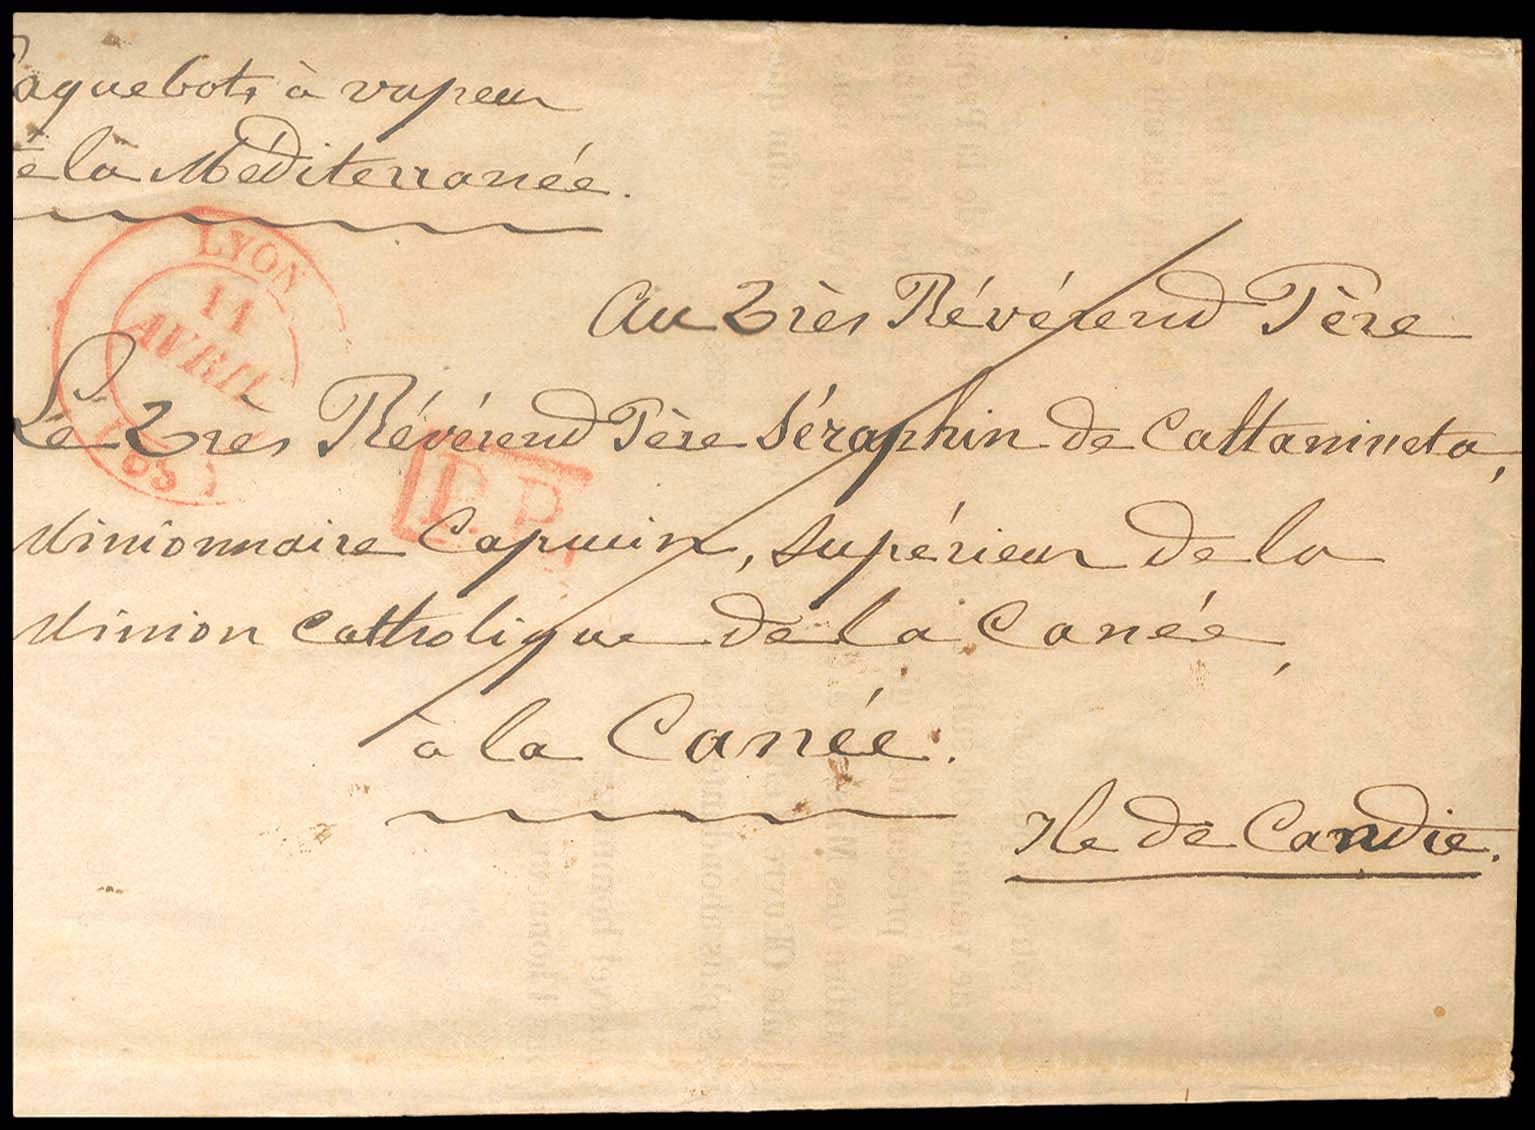 Paquebots à vapeur
de la Méditerranée.
LYON
11
AVRIL
P.P.
Au Très Révérend Père
Le Très Révérend Père Séraphin de Cattanineta,
Missionnaire Capucin, Supérieur de la
Mission Catholique de la Canée,
à la Canée.
Ile de Candie.